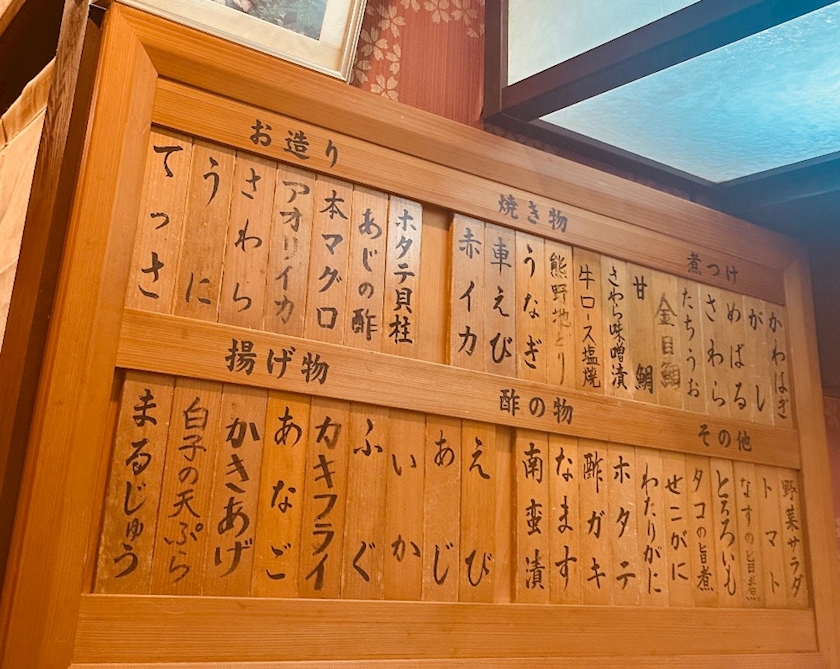 煮つけ
かわはぎ
がし
めばる
さわら
たちうお
金目鯛
焼き物
甘鯛
さわら味噌漬
牛ロース塩焼
熊野地とり
うなぎ
車えび
赤イカ
お造り
ホタテ貝柱
あじの酢
本マグロ
アオリイカ
さわら
うに
てっさ
その他
野菜サラダ
トマト
なすの旨煮
とろろいも
タコの旨煮
酢の物
せこがに
わたりがに
ホタテ
酢ガキ
なます
南蛮漬
揚げ物
えび
あじ
いか
ふぐ
カキフライ
あなご
かきあげ
白子の天ぷら
まるじゅう